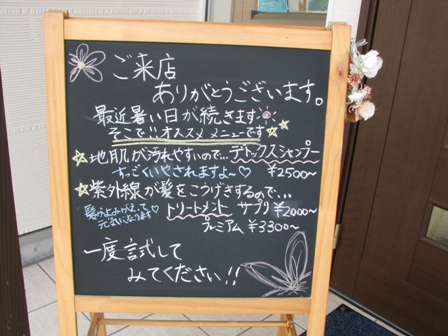 ご来店
ありがとうございます。
最近暑い日が続きます
そこで!!オススメメニューです
地肌が汚れやすいので… デトックスシャンプー
すっごくいやされますよ~♡ ¥2500~
紫外線が髪をこうげきするので…
髪がよみがえって トリートメント サプリ ¥2000~
元気になります♡ プレミアム ¥3300~
一度試して
みてください!!